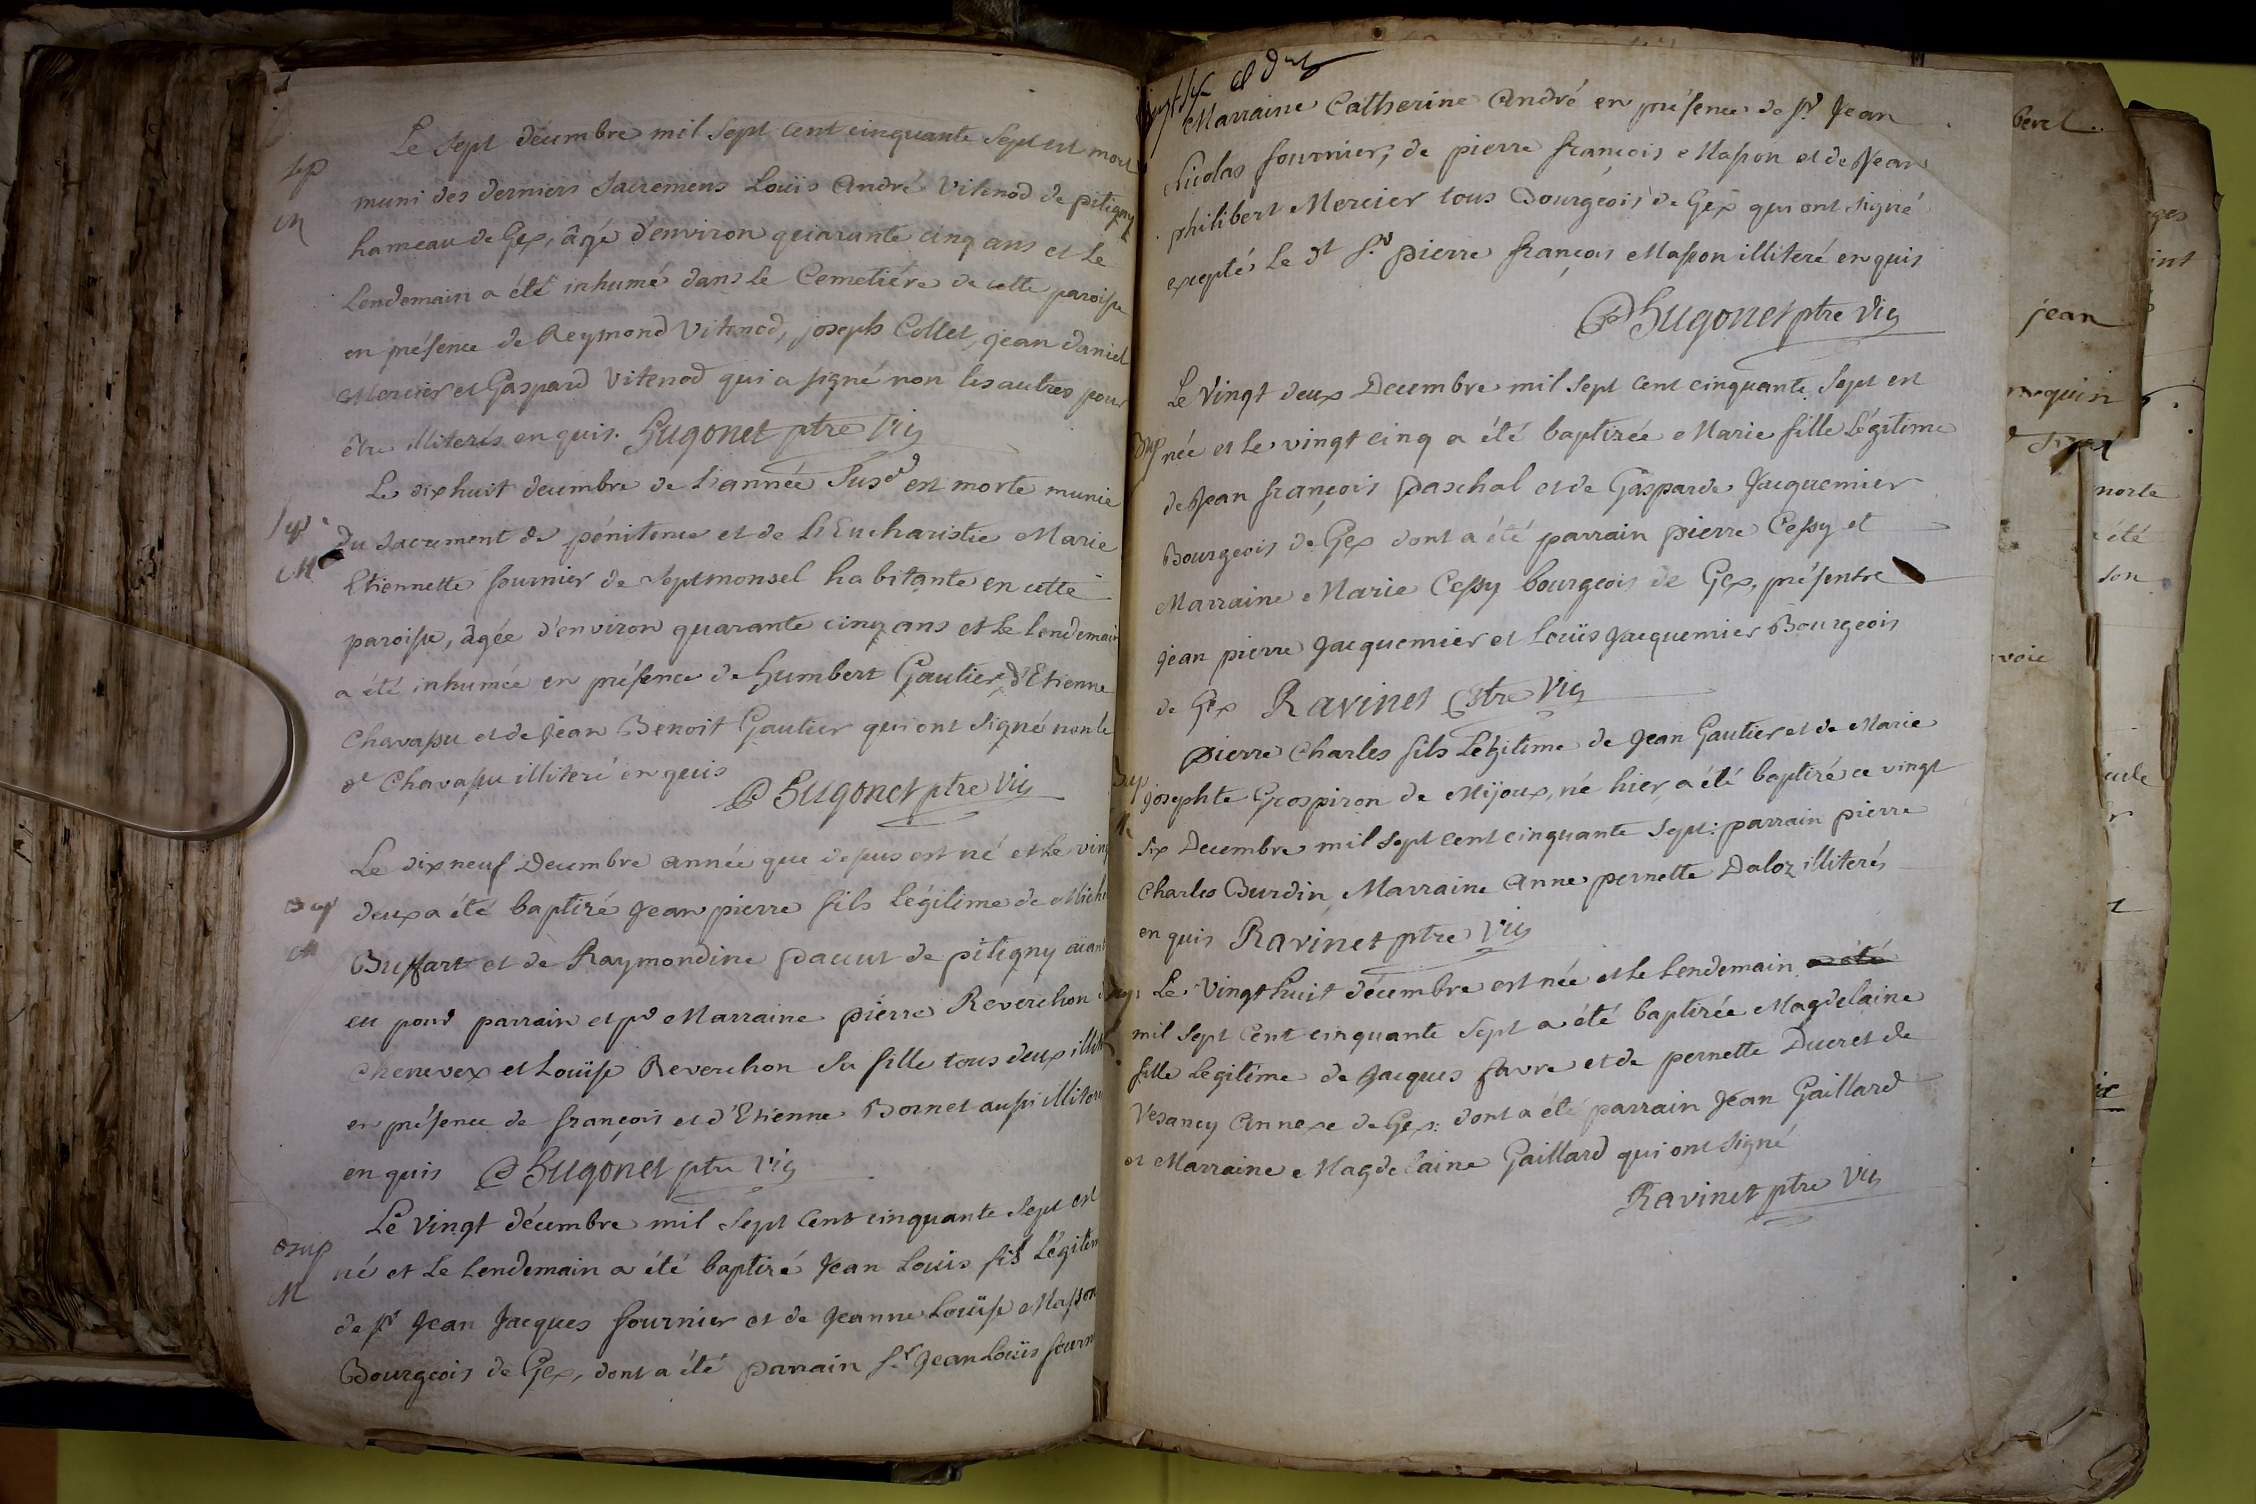 Le sept décembre mil sept cent cinquante sept est mort
muni des derniers sacremens Louïs André Vitenod de pitigny
hameau de Gex, âgé d'environ quarante cinq ans et le
lendemain a été inhumé dans le Cemetiére de cette paroisse
en présence de Reymond Vitenod, joseph Collet, jean daniel
Mercier et Gaspard Vitenod qui a signé non les autres pour
être illiterés enquis. Hugonet ptre Vic
Sep
M
Le dixhuit decembre de l'année Susd est morte munie
du sacrement de pénitence et de l'Eucharistie Marie
Etiennette fournier de Septmonsel habitante en cette
paroisse, âgée d'environ quarante cinq ans et le lendemain
a été inhumée en présence de humbert Gautier, d'Etienne
Chavassu et de Jean Benoit Gautier qui ont signé non le
d Chavassu illiteré enquis
Hugonet ptre Vic
Sep
M
Le dixneuf Decembre année que dessus est né et le ving
deux a été baptizé Jean pierre fils légitime de Mich
Buffart et de Raymondine Dacut de pitigny aïant
eu pour parrain et pr Marraine pierre Reverchon
Chenevex et Louïse Reverchon sa fille tous deux illit
en présence de françois et d'Etienne Bornet aussi illiter
enquis Hugonet ptre Vic
Bap
M
Le Vingt décembre mil sept cent cinquante sept est
né et le lendemain a été baptizé Jean Louis fils légitim
de sr Jean Jacques fournier et de Jeanne Louïse Masson
Bourgeois de Gex, dont a été parrain sr Jean Louïs fourn
Bap
M
Marraine Catherine André en présence de sr Jean
Nicolas fournier, de pierre françois Masson et de Jean
philibert Mercier tous Bourgeois de Gex qui ont signé
excepté le dt sr pierre françois Masson illiteré enquis
Hugonet ptre Vic
Le Vingt deux Decembre mil sept cent cinquante sept est
née et le vingt cinq a été baptizée Marie fille légitime
de Jean françois paschal et de Gasparde Jacquemier
Bourgeois de Gex dont a été parrain pierre Cessy et
Marraine Marie Cessy bourgeois de Gex, présentre
jean pierre Jacquemier et Louïs Jacquemier Bourgeois
de Gex Ravinet ptre Vic
Bap
pierre Charles fils légitime de Jean Gautier et de Marie
josephte Grospiron de Mijoux, né hier, a été baptizé ce vingt
six Decembre mil sept cent cinquante sept: parrain pierre
Charles Burdin, Marraine Anne pernette Daloz illiterés
enquis Ravinet ptre Vic
Bap
Le Vingt huit décembre est née et le lendemain a été
mil sept cent cinquante sept a été baptizée Magdelaine
fille légitime de Jacques favre et de pernette Ducret de
Vesancy Annexe de Gex: dont a été parrain Jean Gaillard
et Marraine Magdelaine Gaillard qui ont signé
Ravinet ptre Vic
jean
enquis
morte
été
son
voie